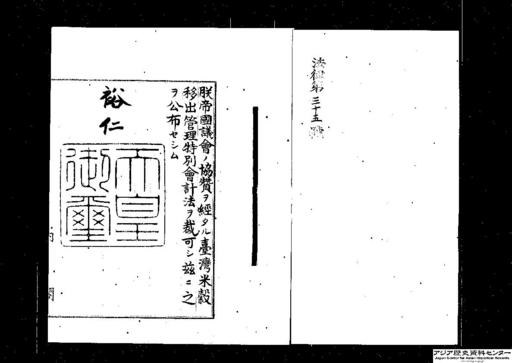 法律第三十五號
朕帝國議會ノ協贊ヲ經タル臺灣米穀
移出管理特別會計法ヲ裁可シ茲ニ之
ヲ公布セシム
裕仁
天皇
御璽
アジア歴史資料センター
Japan Center for Asian Historical Records